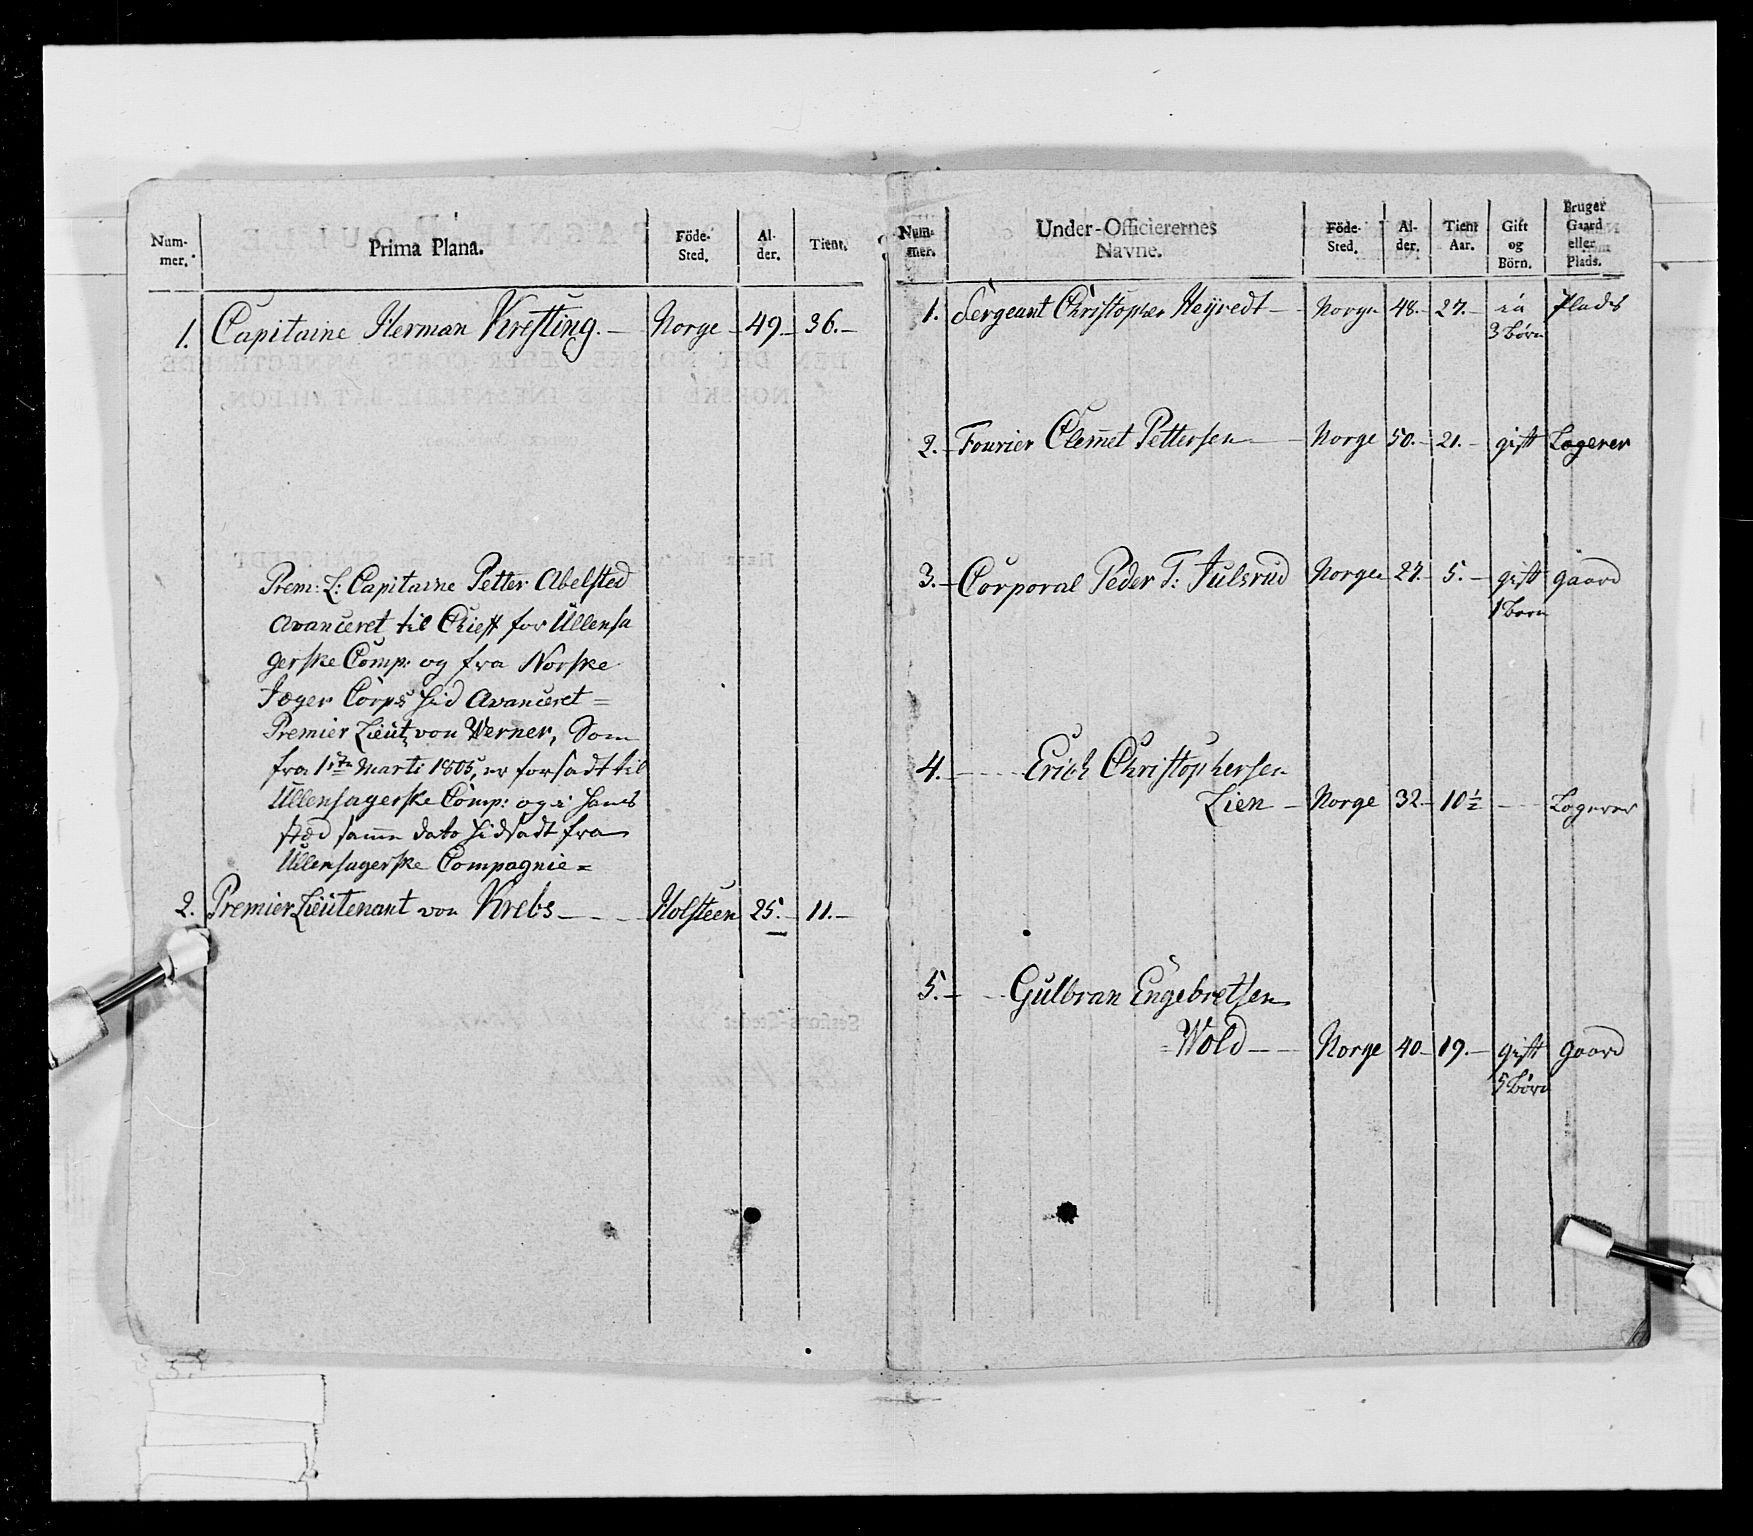 Num-
mer.
Prima Plana.
Föde-
Sted.
Al-
der.
Tient.
1. Capitaine Herman Krefting. — Norge — 49. — 36. —
Prem: L: Capitaine Petter Abelsted
Avanceret til Chieff for Ullensa
gerske Comp: og fra Norske
Jæger Corps hid Avanceret =
Premier Lieut, von Werner, Som
fra 1ste Marti 1805, er forsadt til
Ullensagerske Comp: og i hans
stæd samme dato hidsadt fra
Ullensagerske Compagnie =
2. Premier Lieutenant von Krebs — — — Holsteen 25. — 11. —
Num-
mer.
Under-Officierernes
Navne.
Föde-
Sted.
Al-
der.
Tient
Aar.
Gift
og
Börn.
Bruger
Gaard
eller
Plads.
1. Sergeant Christopher Heyredt — Norge 48. — 27. — Plads
3 Börn
2. — Fourier Clemet Pettersen — Norge 50. — 21. — gift Logerer
3. — Corporal Peder T: Julsrud Norge 27. — 5. — gift gaard
1 Barn
4. — — — Erich Christophersen
Lien — Norge 32 — 10½ — — Logerer
5. — — Gulbran Engebretsen
= Wold — — Norge 40 — 19. — gift gaard
5 Börn